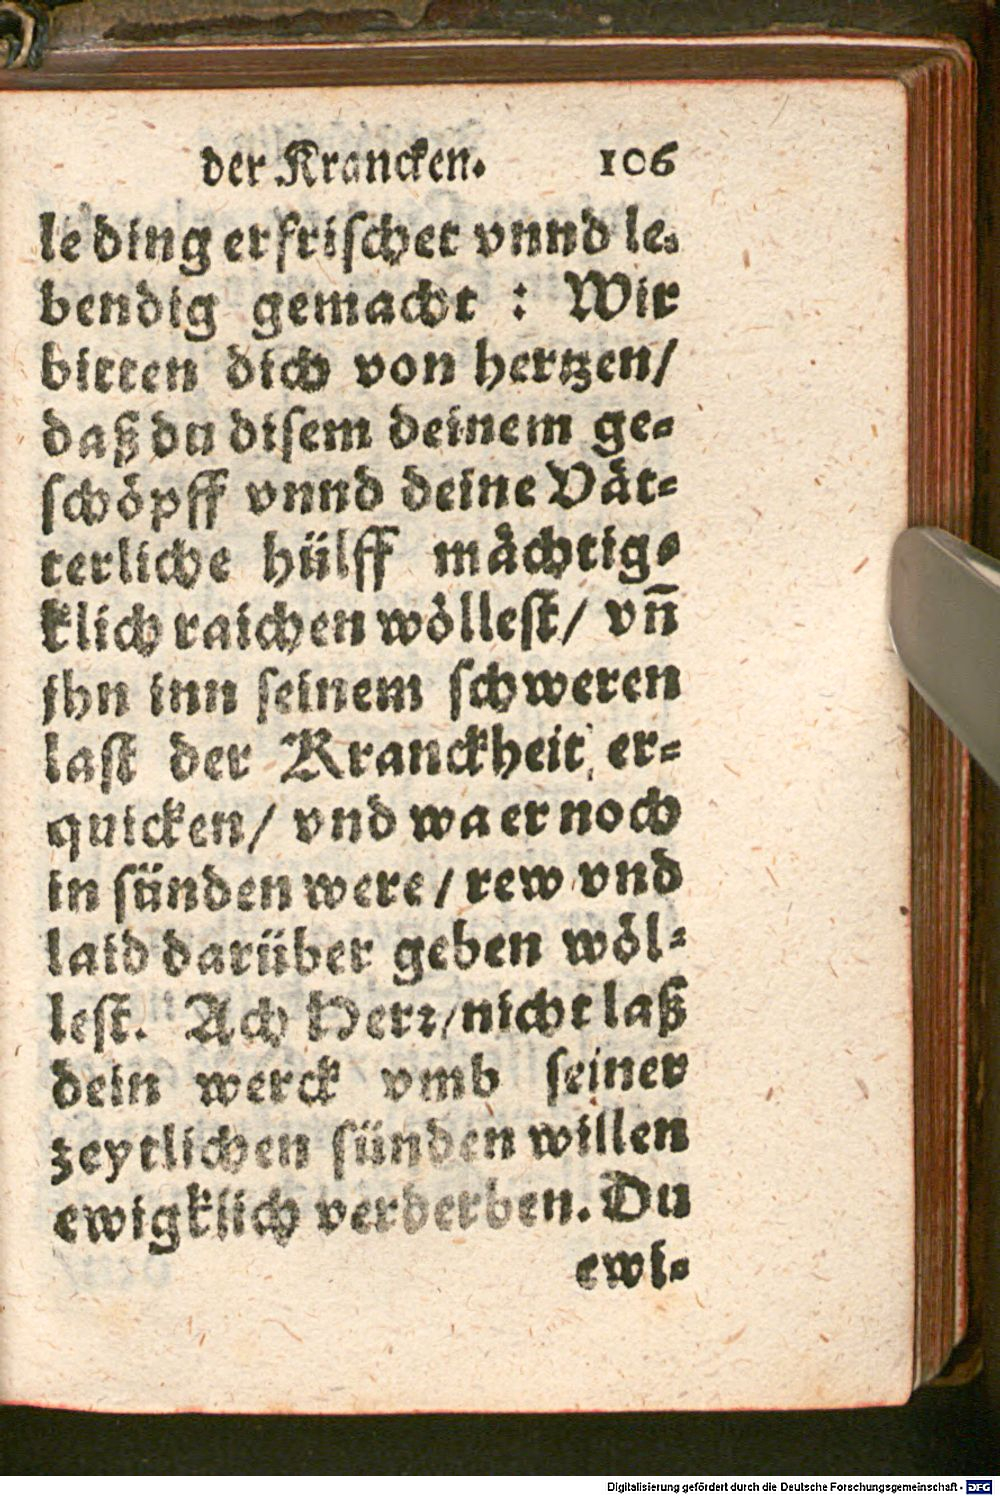 der Krancken. 106
le ding erfrischet vnnd le-
bendig gemacht : Wir
bitten dich von hertzen/
daß du disem deinem ge-
schöpff vnnd deine Vät-
terliche hülff mächtig-
klich raichen wöllest/ vñ
jhn inn seinem schweren
last der Kranckheit er-
quicken/ vnd wa er noch
in sünden were/ rew vnd
laid darüber geben wöl-
lest. Ach Herr/ nicht laß
dein werck vmb seiner
zeytlichen sünden willen
ewigklich verderben. Du
ewi-
Digitalisierung gefördert durch die Deutsche Forschungsgemeinschaft - DFG